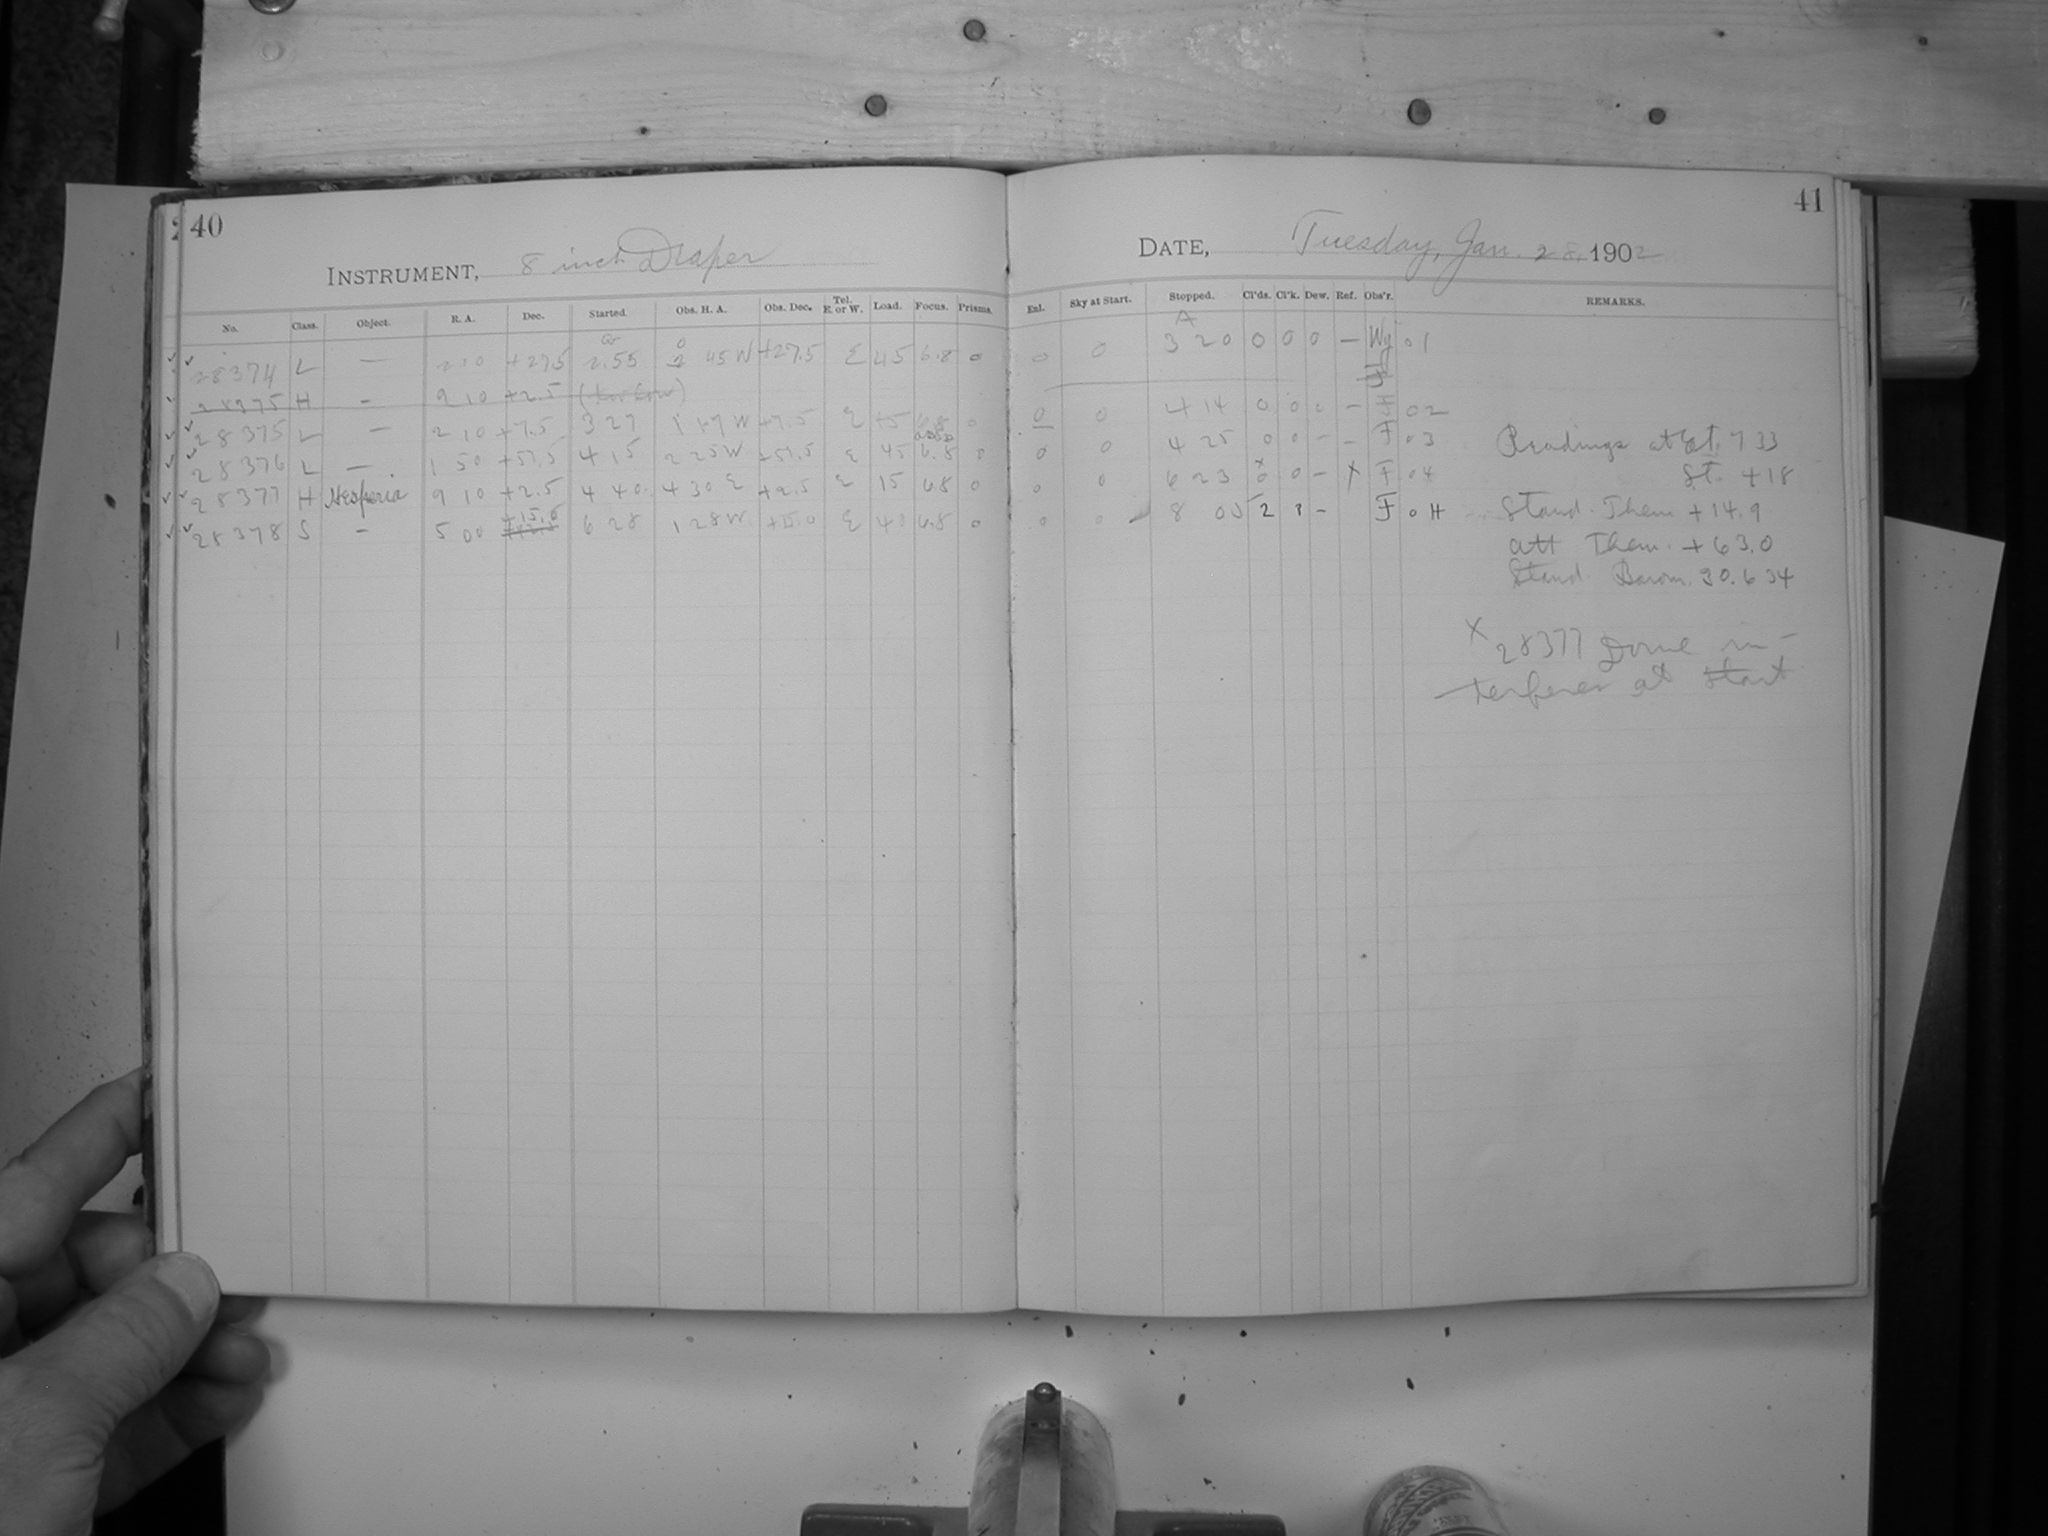 40
INSTRUMENT, 8 inch Draper
No. Class. Object. R. A. Dec. Started. Obs. H. A. Obs. Dec. Tel. E. or W. Load. Focus. Prisms.
28374 L — 2 10 +27.5 2.55 0 45 W +27.5 E 45 6.8 0
28375 H — 9 10 +2.5
28375 L — 2 10 +7.5 3 27 1 47 W +7.5 E 45 6.8 0
28376 L — 1 50 +57.5 4 15 2 25 W +57.5 E 45 6.8 0
28377 H Hesperia 9 10 +2.5 4 40 4 30 E +2.5 E 15 6.8 0
28378 S — 5 00 +15.0 6 28 1 28 W +15.0 E 40 6.8 0
41
DATE, Tuesday, Jan. 28, 1902
Enl. Sky at Start. Stopped. Cl'ds. Cl'k. Dew. Ref. Obs'r. REMARKS.
A
0 0 3 20 0 0 0 — Wy 01
0 0 4 14 0 0 0 — 02
0 0 4 25 0 0 – – F 03
0 0 6 23 0 0 – X F 04
0 0 8 05 2 1 – F 0H
Readings at Et. 7 33
St. +18
Stand. Them +14.9
att Them. +63.0
Stand. Barom. 30.634
X 28377 Dome in-
terferes at start